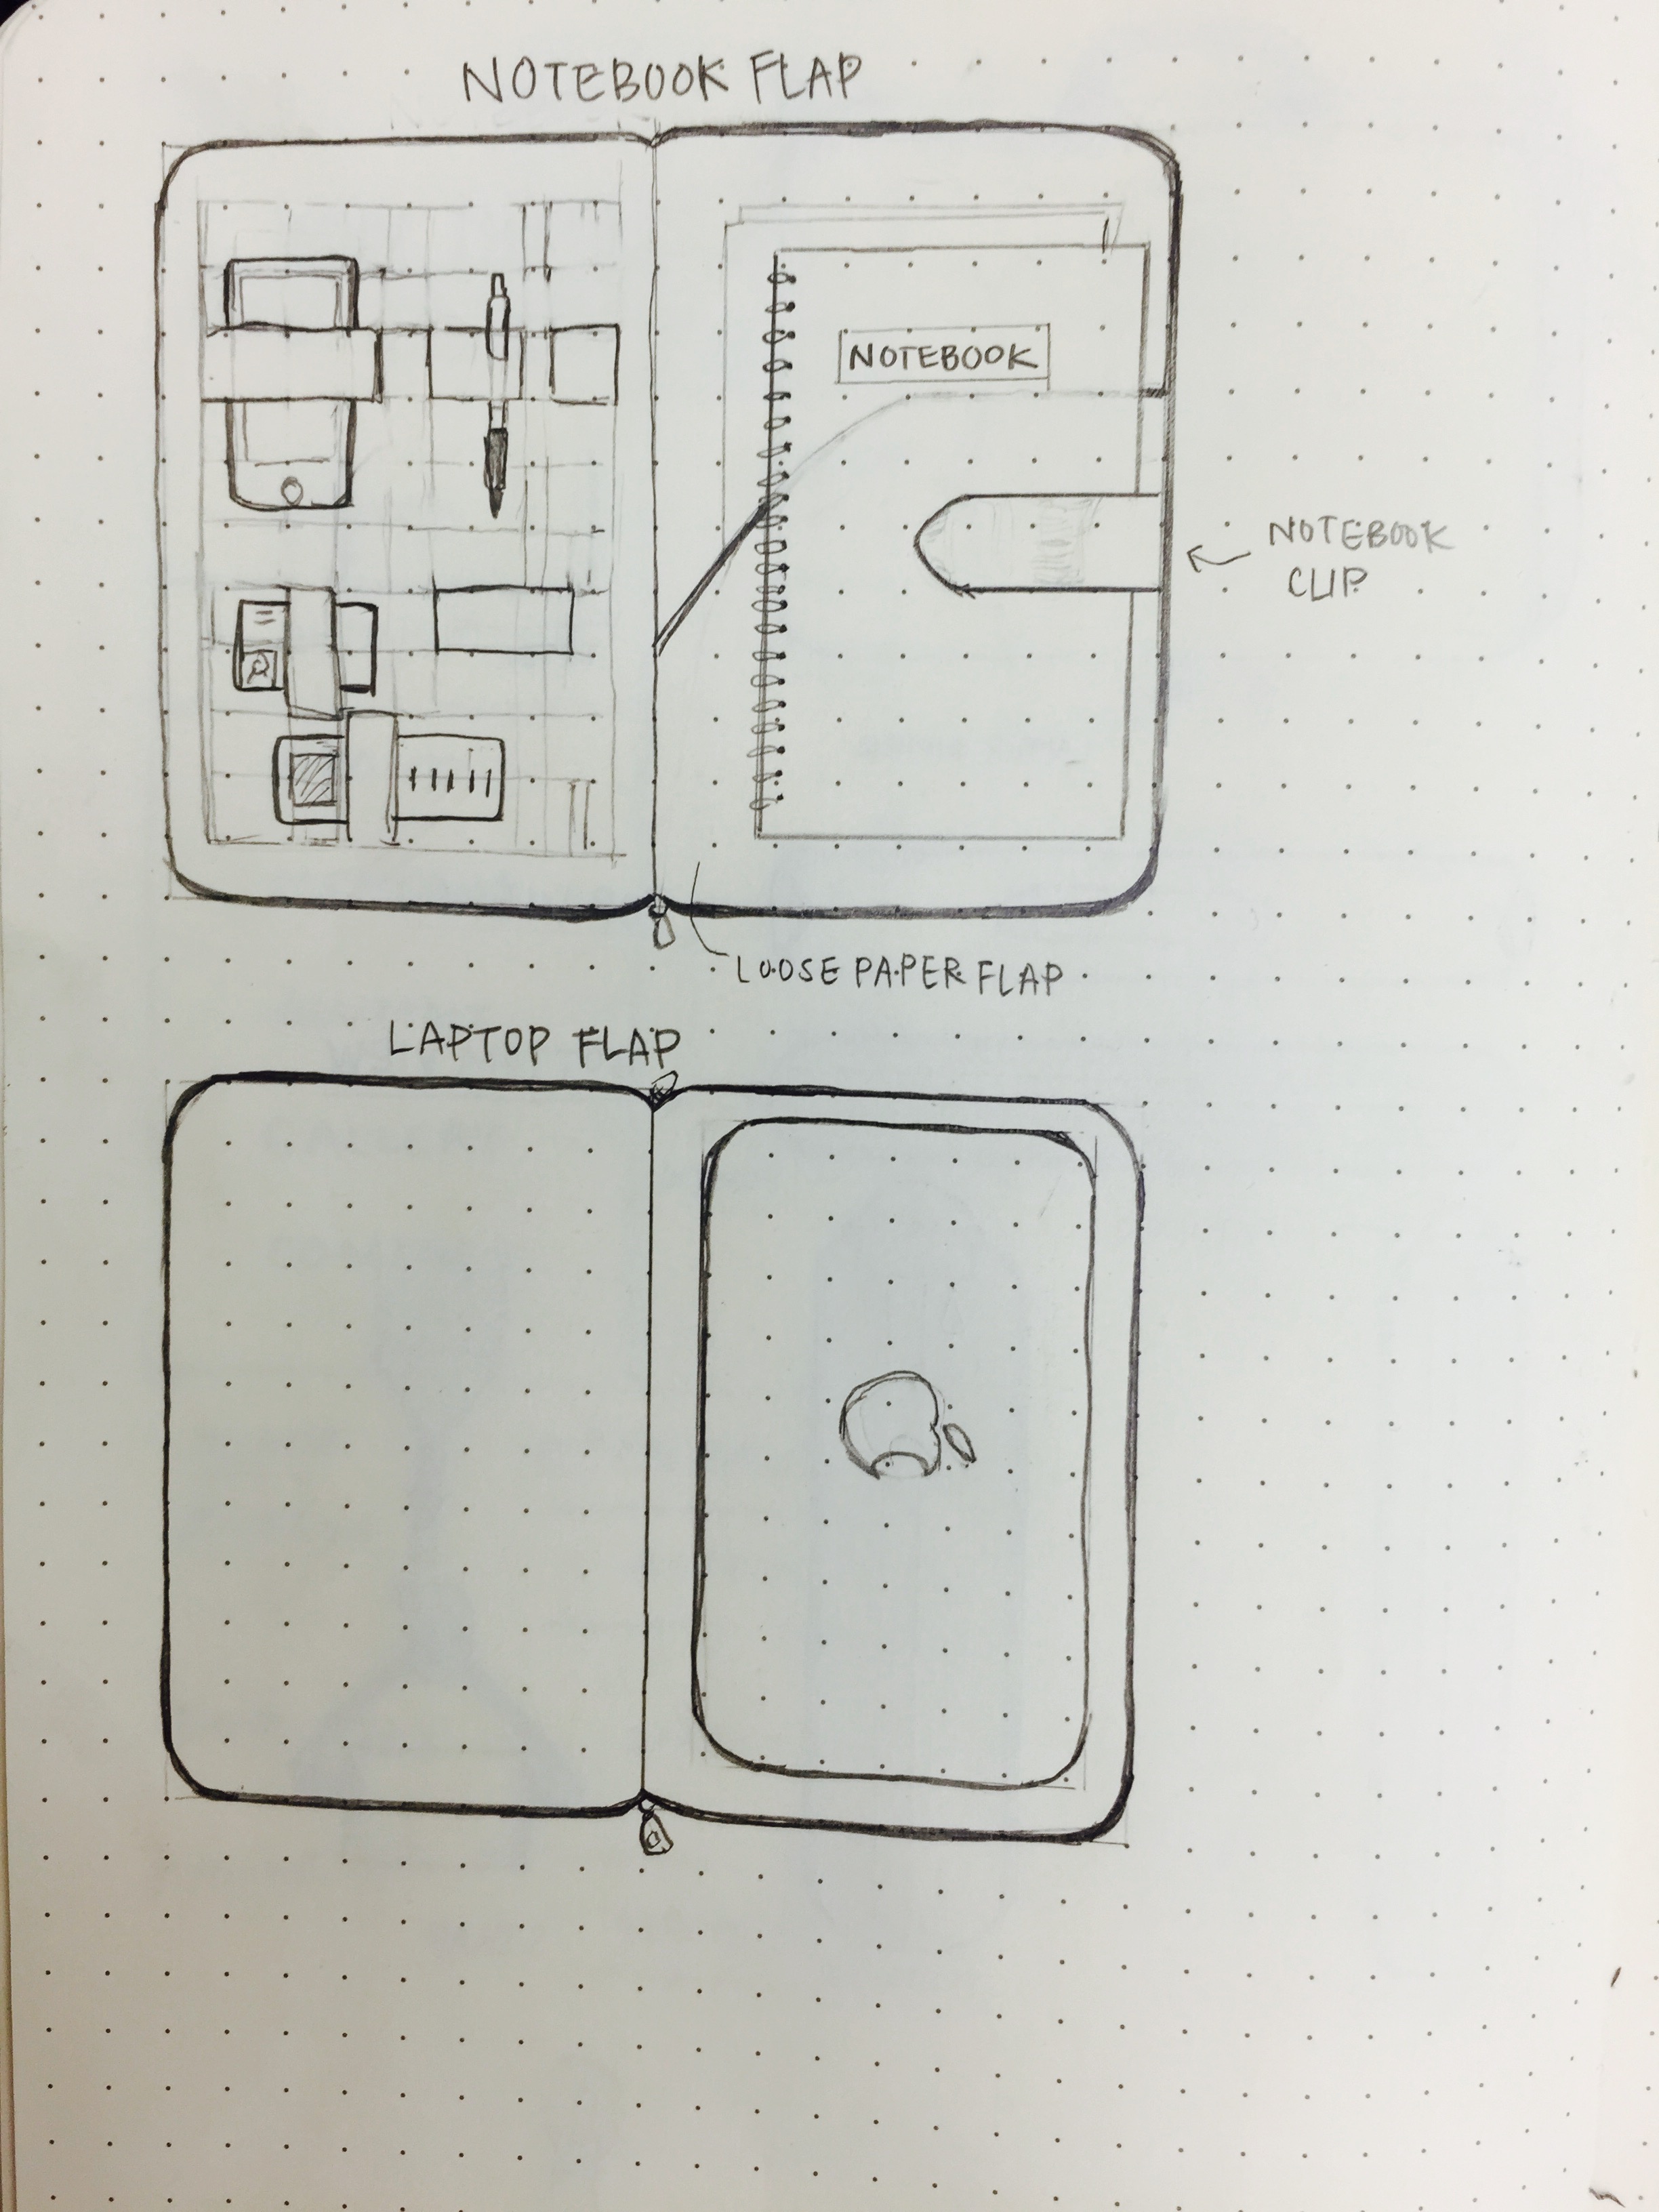 NOTEBOOK FLAP
NOTEBOOK
NOTEBOOK
CLIP
LOOSE PAPER FLAP
LAPTOP FLAP